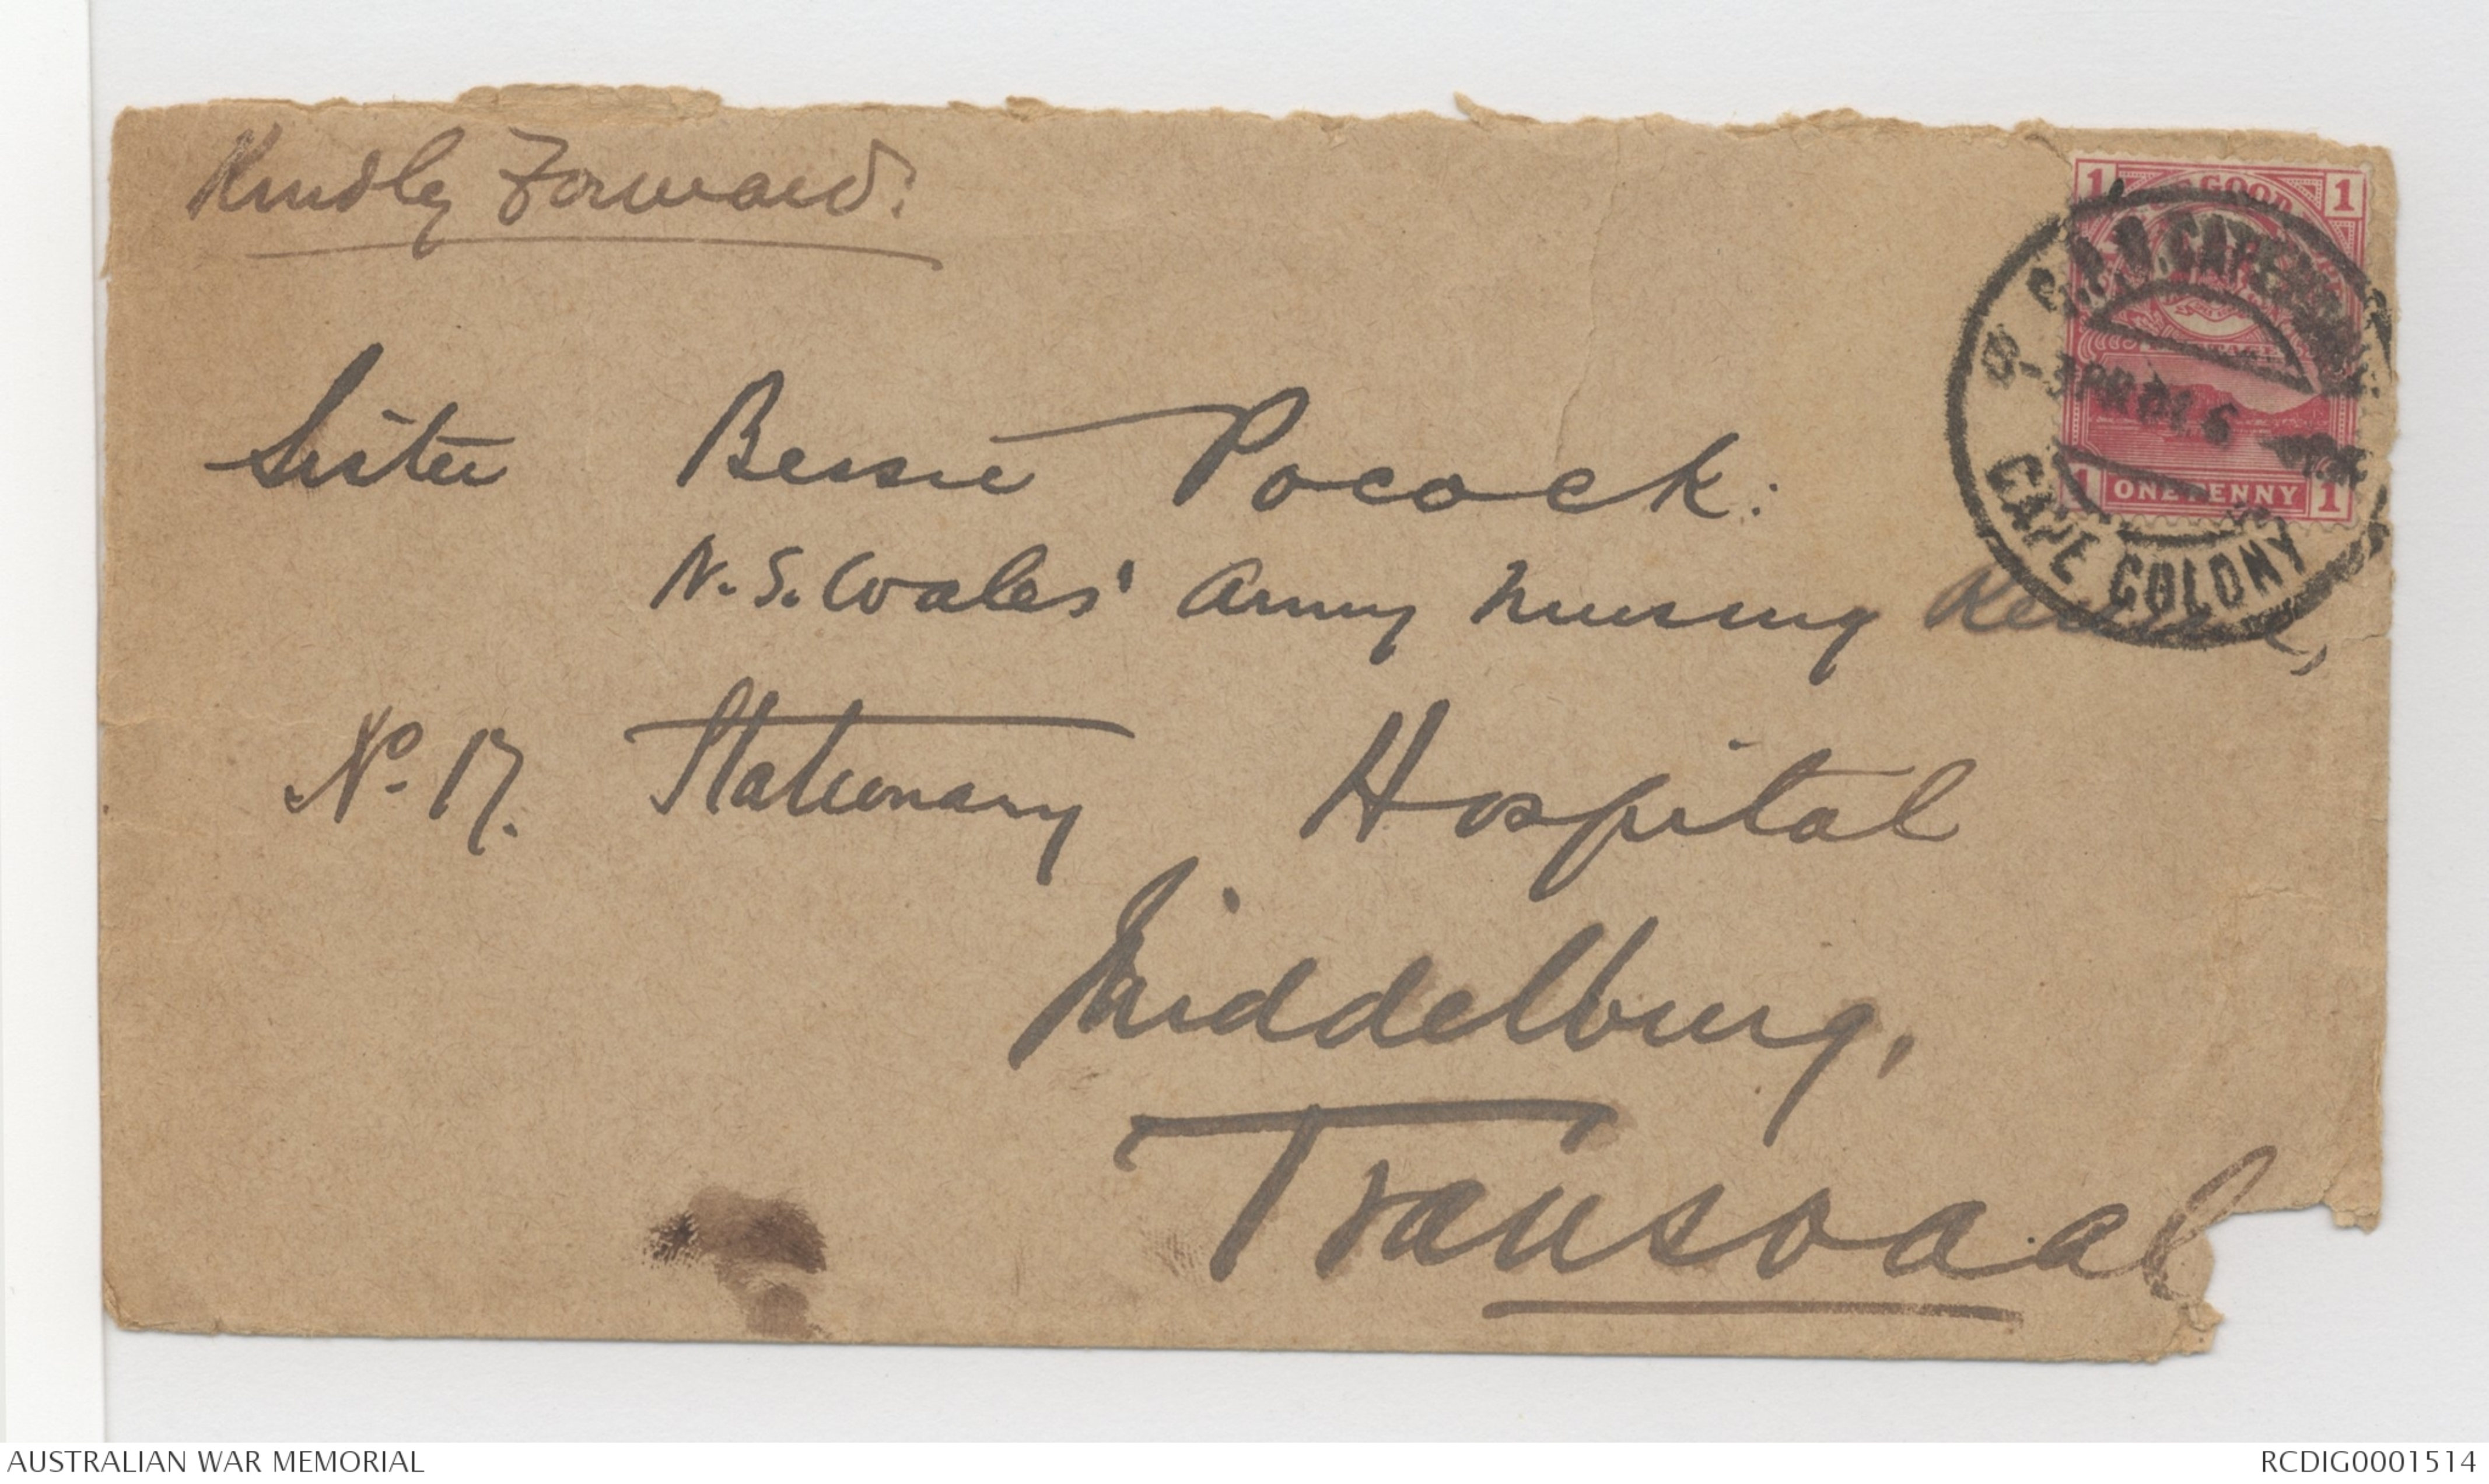 Kindly Forward.
Sister Bessie Pocock.
N.S. Wales' Army Nursing Reserve,
No. 17. Stationary Hospital
Middelburg,
Transvaal
1 GOOD 1
G.P.O. CAPETOWN
APR 01 6
1 ONE PENNY 1
CAPE COLONY
AUSTRALIAN WAR MEMORIAL
RCDIG0001514